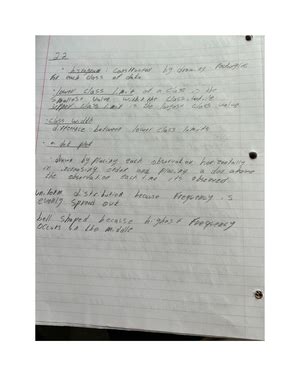 2.2
· histogram: constructed by drawing rectangles
for each class of data
· lower class limit of a class is the
smallest value within the class while
upper class limit is the largest class value.
· class width
difference between lower class limits
· a dot plot
drawn by placing each observation horizontally
in increasing order and placing a dot above
the observation each time its observed.
uniform distribution because frequency is
evenly spread out
bell shaped because highest frequency
occurs in the middle